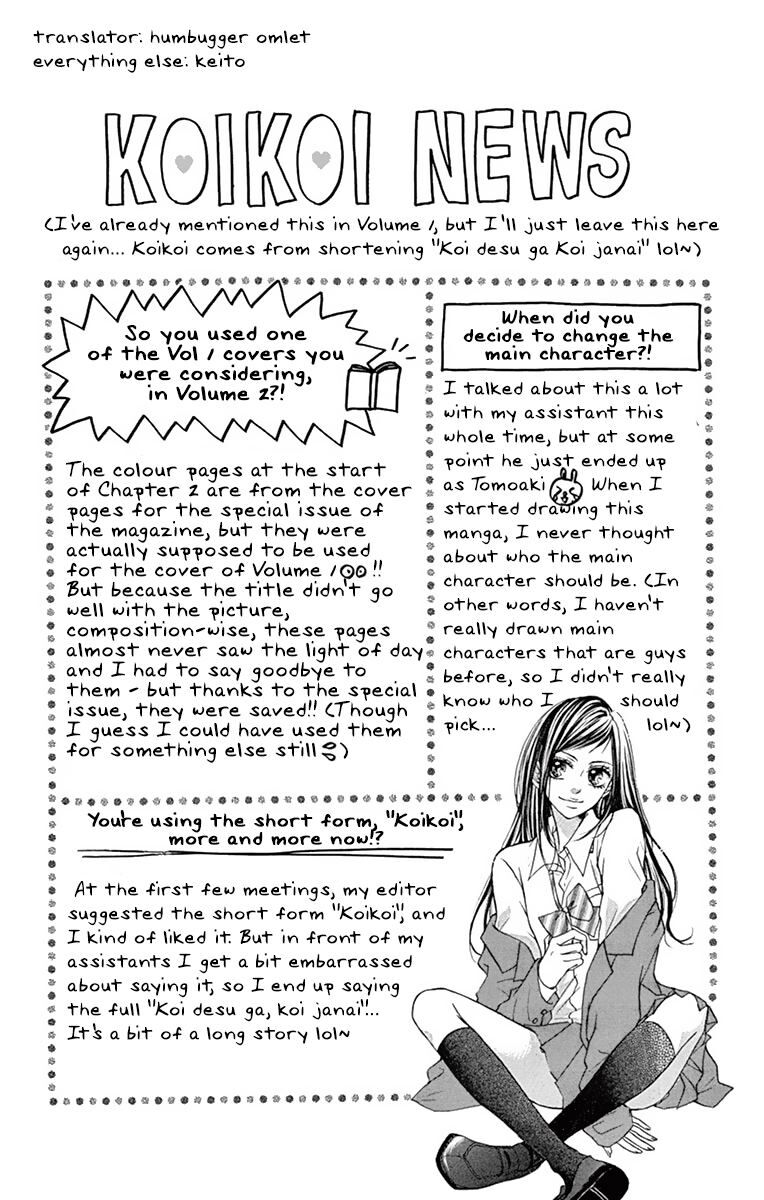 translator: humbugger omlet
everything else: keito
KOIKOI NEWS
(I've already mentioned this in Volume 1, but I'll just leave this here
again... Koikoi comes from shortening "Koi desu ga Koi janai" lol~)
So you used one
of the Vol 1 covers you
were considering,
in Volume 2?!
The colour pages at the start
of Chapter 2 are from the cover
pages for the special issue of
the magazine, but they were
actually supposed to be used
for the cover of Volume 1!!
But because the title didn't go
well with the picture,
composition-wise, these pages
almost never saw the light of day
and I had to say goodbye to
them - but thanks to the special
issue, they were saved!! (Though
I guess I could have used them
for something else still)
When did you
decide to change the
main character?!
I talked about this a lot
with my assistant this
whole time, but at some
point he just ended up
as Tomoaki When I
started drawing this
manga, I never thought
about who the main
character should be. (In
other words, I haven't
really drawn main
characters that are guys
before, so I didn't really
know who I should
pick... lol~)
You're using the short form, "Koikoi",
more and more now!?
At the first few meetings, my editor
suggested the short form "Koikoi", and
I kind of liked it. But in front of my
assistants I get a bit embarrassed
about saying it, so I end up saying
the full "Koi desu ga, koi janai"...
It's a bit of a long story lol~